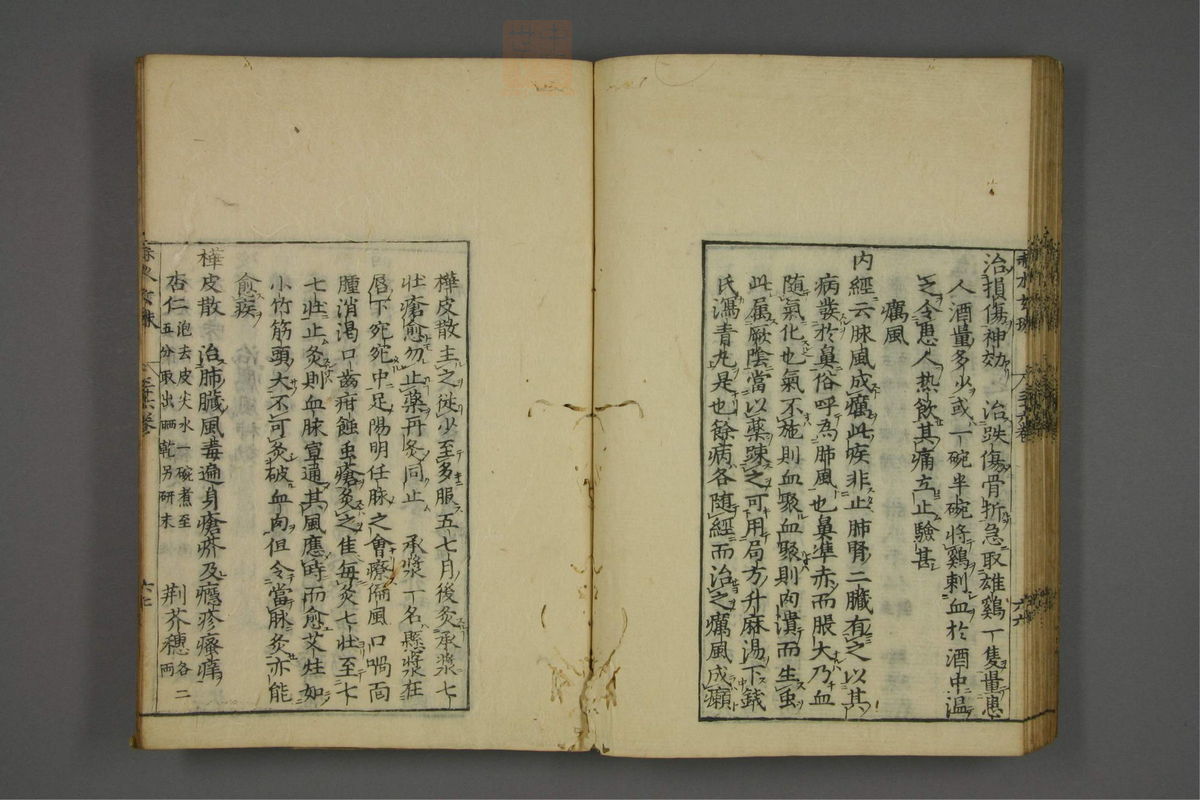 治損傷神効 治跌傷骨折急取雄鷄一隻量患
人酒量多少或一碗半碗將鷄刺血於酒中温
之令患人热飲其痛立止驗甚
癘風
内經云脉風成癘此疾非止肺腎二臓有之以其
病發於鼻俗呼為肺風也鼻準赤而脹大乃血
隨氣化也氣不施則血聚血聚則肉潰而生虫
此属厥陰當以藥踈之可用局方升麻湯下錢
氏瀉青丸是也餘病各隨經而治之癘風成癩
樺皮散主之従少至多服五七月後灸承漿七
壮瘡愈勿止藥再灸同止 承漿一名懸漿在
唇下宛宛中足陽明任脉之會療偏風口喎面
腫消渴口齒疳蝕虫瘡灸之佳毎灸七壮至七
七壮止灸則血脉宣通其風應時而愈艾炷如
小竹筋頭大不可灸破血肉但令當脉灸亦能
愈疾
樺皮散 治肺臓風毒遍身瘡疥及癮疹瘙痒
杏仁泡去皮尖水一碗煮至五分取出晒乾另研末 荆芥穗各二兩